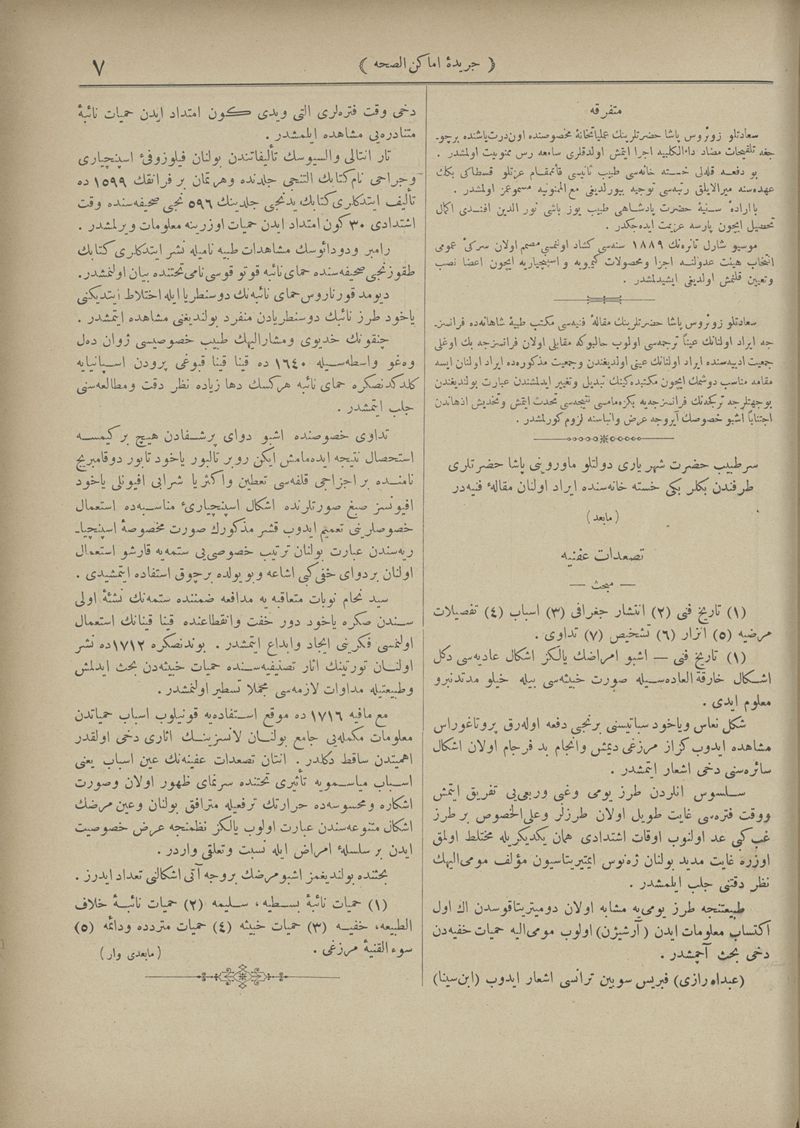 ﴿ جريدۀ اماكن الصحه ﴾
٧
متفرقه
سعادتلو زونروس پاشا حضرتلرينك عملياتخانۀ مخصوصنده اون درت ياشنده برجو-
جغه تلقيحات مضاد داءالكلبيه اجرا ايتمش اولدقلری سامعه رس ممنونيت اولمشدر .
بو دفعه قله‌لی خسته خانه‌سی طبيب ثانيسی قائمقام عزتلو قسطاكی بكك
عهده‌سنه ميرالايلق رتبه‌سی توجيه بيورلديغی مع‌الممنونيه مسموعمز اولمشدر .
بااراده سنيۀ حضرت پادشاهی طبيب يوز باشی نور الدين افندی اكمال
تحصيل ايچون پارسه عزيمت ايده‌جكدر .
موسيو شارل تانره‌نك ١٨٨٩ سنه‌سی كشاد اولنمسی مصمم اولان سركی عمومی
انتخاب هيئت عدولنه اجزا ومحصولات كيمويه و اسپنچياريه ايچون اعضا نصب
وتعيين قلنمش اولديغی ايشيدلمشدر .
سعادتلو زونروس پاشا حضرتلرينك مقالۀ فنيه‌سی مكتب طبيۀ شاهانه‌ده فرانسز-
جه ايراد اولنانك عيناً ترجمه‌سی اولوب حالبوكه مقابلی اولان فرانسزجه بك اوغلی
جمعيت ادبيه‌سنده ايراد اولنانك عينی اولديغندن وجمعيت مذكوره‌ده ايراد اولنان ايسه
مقامه مناسب دوشمك ايچون مكتبده‌كينك تبديل وتغيير ايدلمشندن عبارت بولنديغندن
بوجهتلرجه تركجه‌نك فرانسزجه‌يه بكزه‌مامسی نتيجه‌سی تحدث ايتمش وتخديش اذهاندن
اجتناباً اشبو خصوصك آيروجه عرض وانباسنه لزوم كورلمشدر .
سرطبيب حضرت شهر ياری دولتلو ماورونی پاشا حضرتلری
طرفندن بكلر بكی خسته خانه‌سنده ايراد اولنان مقالۀ فنيه‌در
( مابعد )
تصعدات عفنيه
— مبحث —
(١) تاريخ فنی (٢) انتشار جغرافی (٣) اسباب (٤) تفصيلات
مرضيه (٥) انزار (٦) تشخيص (٧) تداوی .
(١) تاريخ فنی — اشبو امراضك يالكز اشكال عاديه‌سی دكل
اشكال خارقة العاده‌سيله صورت خبيثه‌سی بيله خيلو مدتدنبرو
معلوم ايدی .
شكل نعاس وياخود سباتيسنی برنجی دفعه اوله‌رق پروتاغوراس
مشاهده ايدوب كراز مرزغی ديمش وانجام بد فرجام اولان اشكال
سائره‌سنی دخی اشعار ايتمشدر .
سلسوس انلردن طرز يومی وغبی وربعی‌بی تفريق ايتمش
ووقت فتره‌سی غايت طويل اولان طرزلر وعلی‌الخصوص بر طرز
غب كبی عد اولنوب اوقات اشتدادی همان يكديكريله مختلط اولمق
اوزره غايت مديد بولنان ژه‌نوس ايميتريتاسيون مؤلف مومی‌اليهك
نظر دقتنی جلب ايلمشدر .
طبيعتنجه طرز يومی‌يه مشابه اولان دوميتريتاقوسدن اك اول
اكتساب معلومات ايدن ( آرشيژن ) اولوب مومی‌اليه حميات خفيه‌دن
دخی بحث آچمشدر .
(عبداه رازی) فبريس سوبين ترانسی اشعار ايدوب (ابن سينا)
دخی وقت فتره‌لری التی ويدی كون امتداد ايدن حميات نائبۀ
متنادره‌يی مشاهده ايلمشدر .
تار انتالی والسيوسك تأليفاتندن بولنان فيلوزوفی اسپنچياری
وجراحی نام كتابك التنجی جلدنده وهرنمان بر فرانقك ١٥٩٩ ده
تأليف ايتدكلری كتابك يدنجی جلدينك ٥٩٦ نجی صحيفه‌سنده وقت
اشتدادی ٣٠ كون امتداد ايدن حميات اوزرينه معلومات ويرلمشدر .
رامبر ودودانوسك مشاهدات طبيه ناميله نشر ايتدكلری كتابك
طقوزنجی صحيفه‌سنده حمای نائبه قوتو قوسی نامی تحتنده بيان اولنمشدر .
ديومد قورناروس حمای نائبه‌نك دوسنطريا ايله اختلاط ايتديكنی
ياخود طرز نائبك دوسنطريادن منفرد بولنديغنی مشاهده ايتمشدر .
چنقونك خديوی ومشاراليهك طبيب خصوصيسی ژوان دەل
وەغو واسطه‌سيله ١٦٤٠ ده قينا قينا قبوغی پرودن اسپانيايه
كلدكدنصكره حمای نائبه هركسك دها زياده نظر دقت ومطالعه‌سنی
جلب ايتمشدر .
تداوی خصوصنده اشبو دوای پرشفادن هيچ بر كيمسه
استحصال نتيجه ايده‌مامش ايكن روبر تالبور ياخود تابور دوقامبريج
نامنده بر اجزاجی قلفه‌سی تعطين واكثريا شرابی افيونلی ياخود
افيونسز صبغ صورتلرنده اشكال اسپنچياریٔ مناسبه‌ده استعمال
خصوصلرينی تعميم ايدوب قشر مذكورك صورت مخصوصۀ اسپنچيا-
ريه‌سندن عبارت بولنان ترتيب خصوصی‌يی ستمه‌يه قارشو استعمال
اولنان بردوای خفی كبی اشاعه وبو يولده برچوق استفاده ايتمشيدی .
سيد نحام نوبات متعاقبه‌يه مدافعه ضمننده ستمه‌نك نشئۀ اولی
سندن صكره ياخود دور خفت وانقطاعنده قينا قينانك استعمال
اولنمسی فكرينی ايجاد وابداع ايتمشدر . بوندنصكره ١٧١٢ده نشر
اولنان تورتينك آثار تصنيفيه‌سنده حميات خبيثه‌دن بحث ايدلمش
وطبيعتيله مداوات لازمه‌سی مجملا تسطير اولنمشدر .
مع مافيه ١٧١٦ ده موقع استفاده‌يه قونيلوب اسباب حمياتدن
معلومات مكمله‌يی جامع بولنان لانسزينك اثاری دخی اولقدر
اهميتدن ساقط دكلدر . انتان تصعدات عفنيه‌نك عين اسباب يعنی
اسباب مياسمويه تأثيری تحتنده سرنمای ظهور اولان وصورت
اشكاره ومحسوسه‌ده حرارتك ترفعيله مترافق بولنان وعين مرضك
اشكال متنوعه‌سندن عبارت اولوب يالكز نظمنجه عرض خصوصيت
ايدن بر سلسلۀ امراض ايله نسبت وتعلقی واردر .
بحثنده بولنديغمز اشبو مرضك بروجه آتی اشكالی تعداد ايدرز .
(١) حميات نائبۀ بسطيه ، سليمه (٢) حميات نائبۀ خلاف
الطبيعه ، خفيه (٣) حميات خبيثه (٤) حميات متردده ودائمه (٥)
سوء القنيۀ مرزغی .
( مابعدی وار )